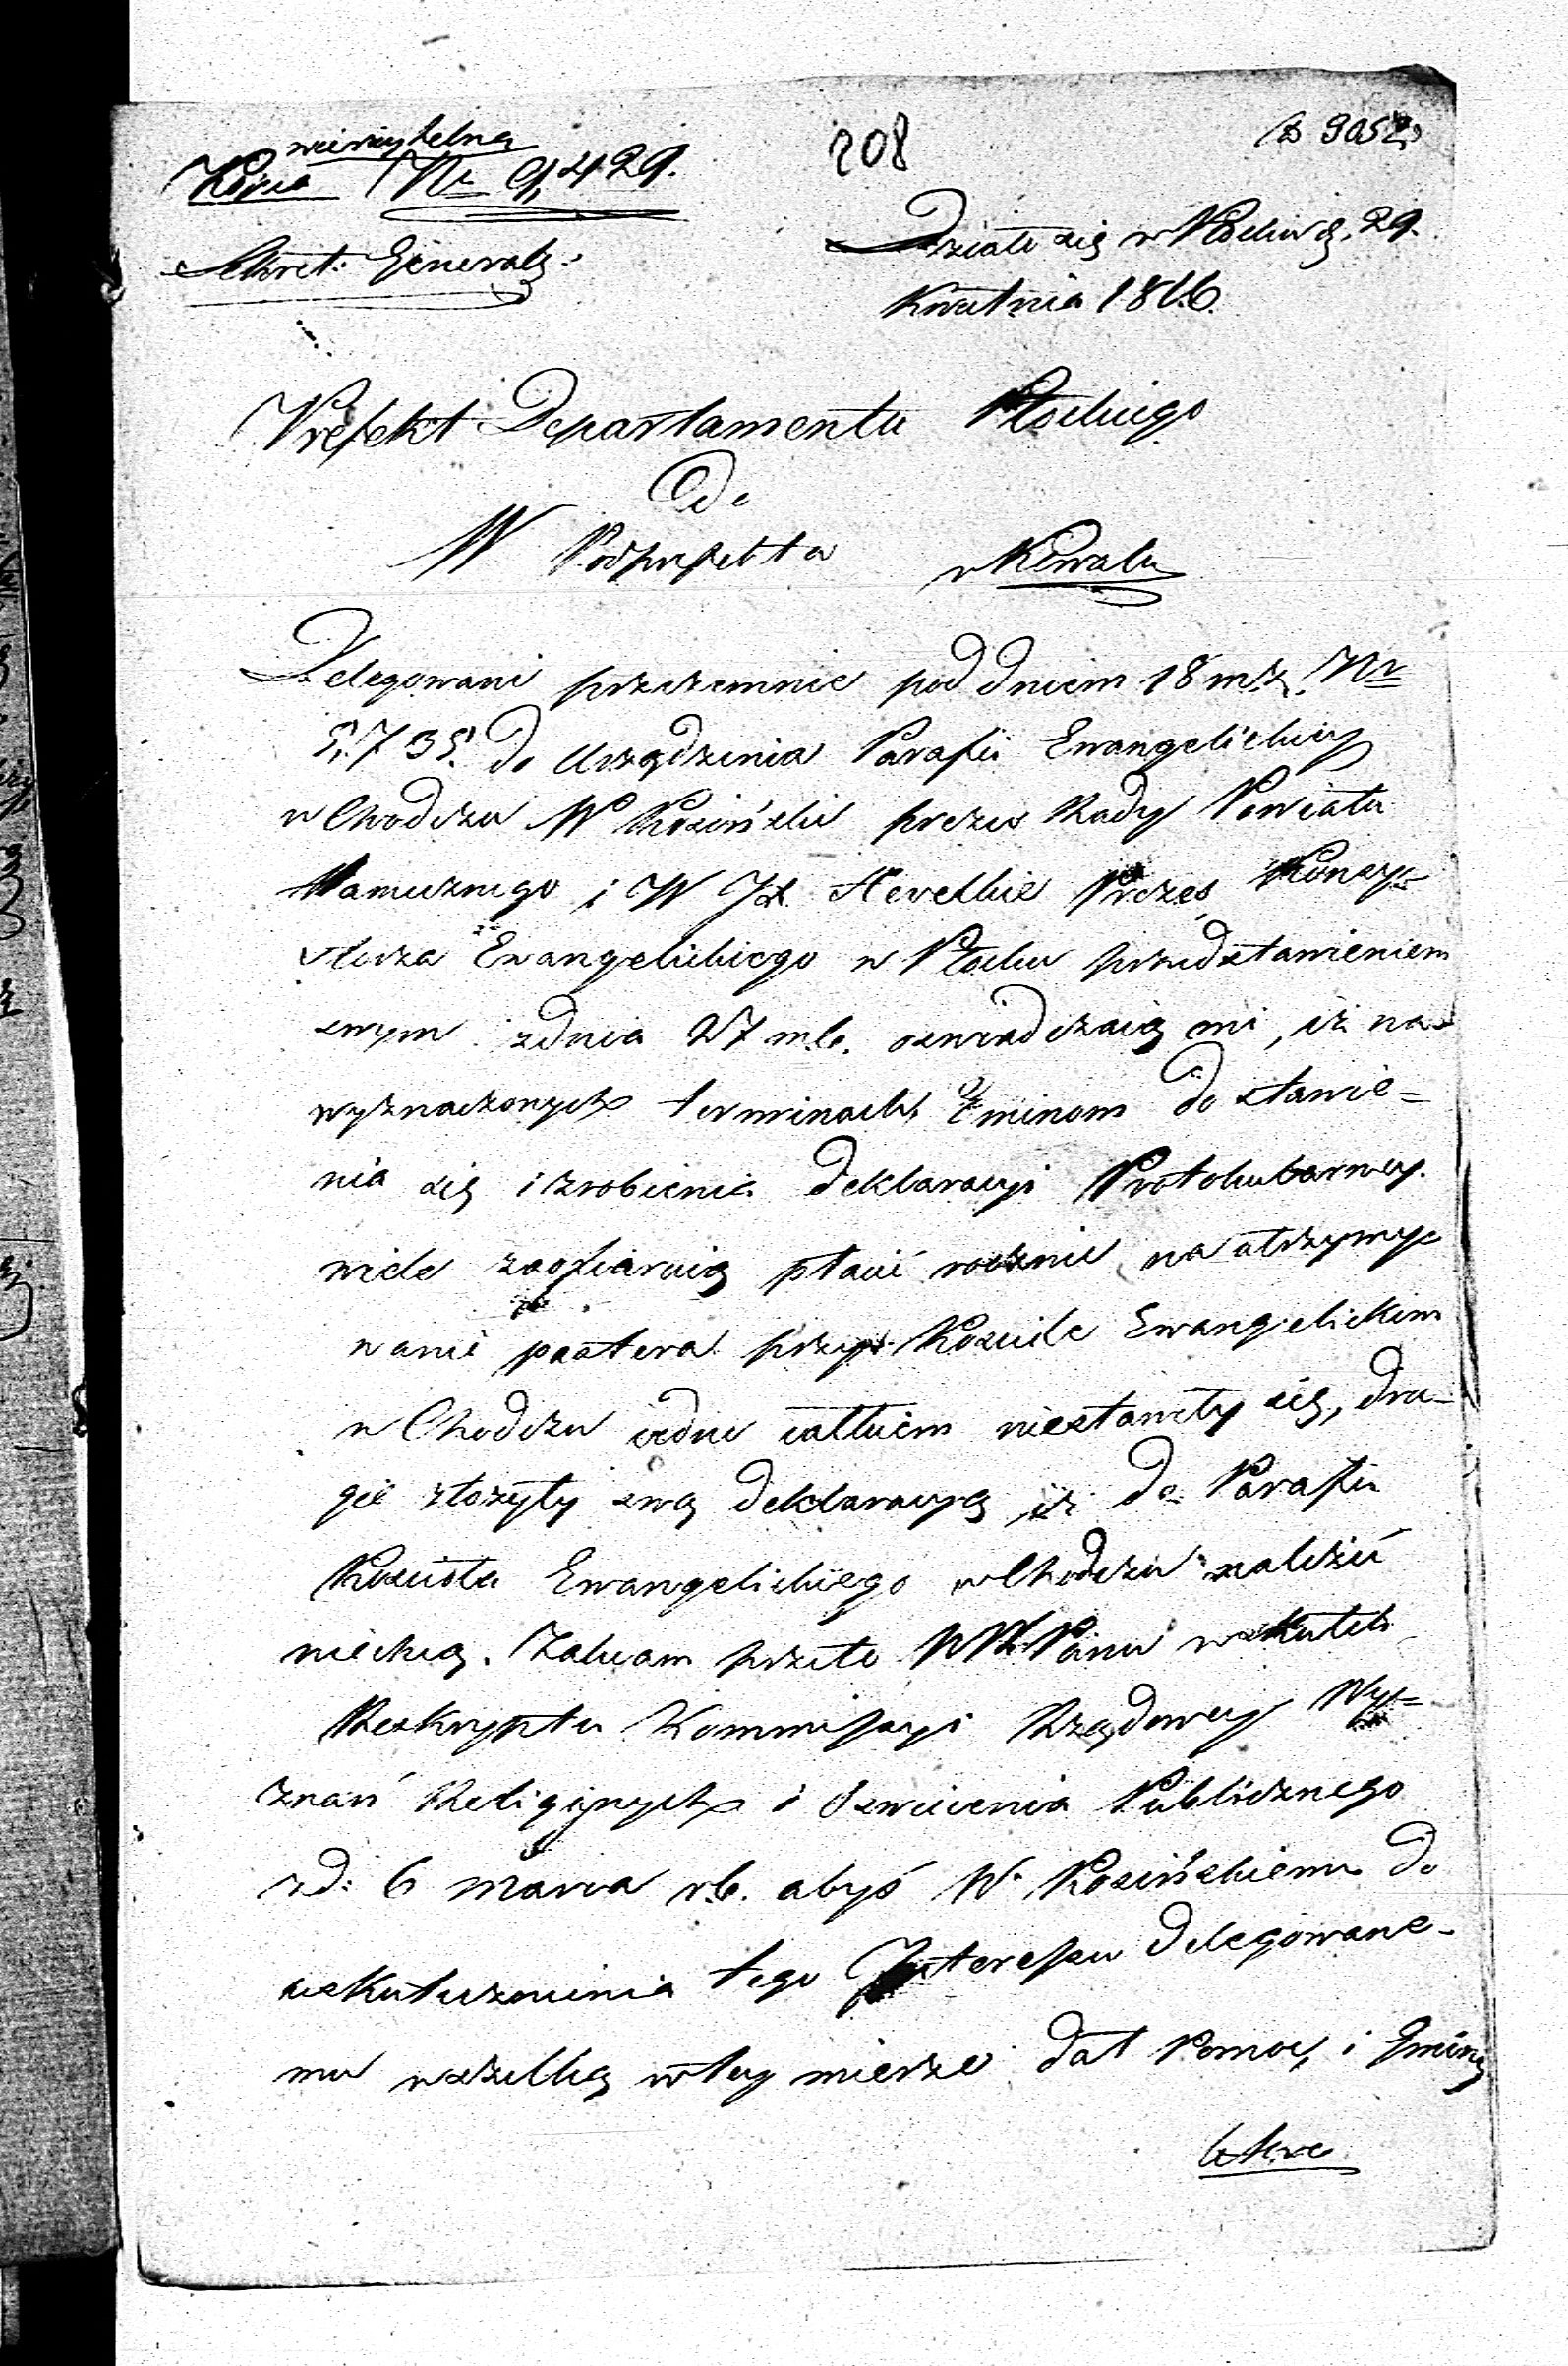 208
wierzytelna
Kopia Nr 9,429.
Sekret: Generaly.
Działo się w Płocku d. 29.
Kwietnia 1816.
Prefekt Departamentu Płockiego
Do
W Podprefekta w Kowalu
Delegowani przezemnie pod dniem 18 m. z. Nr
5,735. do Urządzenia Parafii Ewangelickiey
w Chodczu W Kosiński prezes Rady Powiatu
i W JX Prezes Konsy=
storza Ewangelickiego w Płocku przedstawieniem
swym z dnia 27 m. b. oswiadczaią mi, iż na
wyznaczonych terminach Gminom do stawie=
nia się i zrobienia deklaracyi Protokularney.
wiele zaofiaruią płacić rocznie na utrzymy=
wanie pastera przy Kosciele Ewangelickim
w Chodczu iedne całkiem niestawiły się, dru=
gie złożyły swą deklaracyą iż do Parafii
Kościoła Ewangelickiego w Chodczu należeć
niechcą. Zalecam przeto WPanu w skutek
Reskryptu Kommissyi Rządowey Wy=
znań Religiynych i Oswiecenia Publicznego
z d: 6 marca r. b. abyś W. Kosińskiemu do
uskutecznienia tego Interessu delegowane=
mu wszelką w tey mierze dał Pomoc, i Gminy